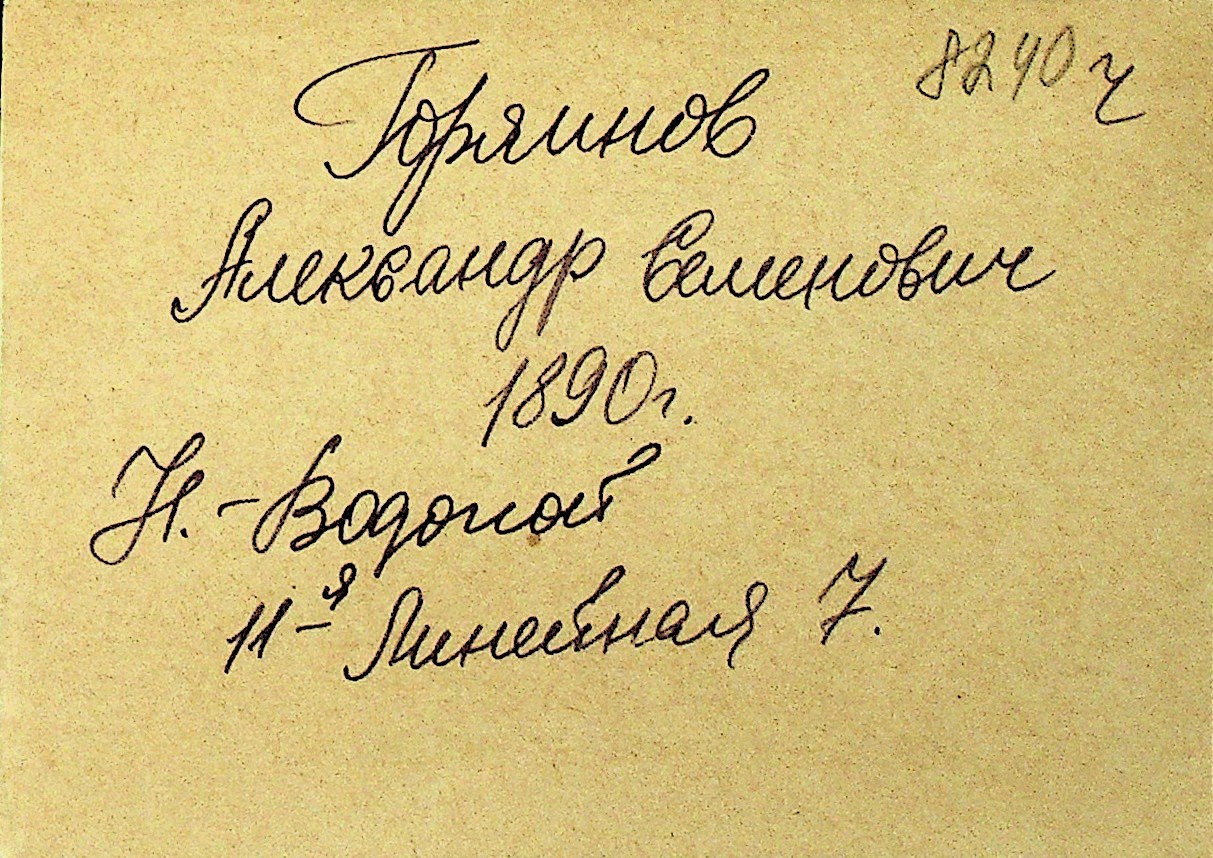 8240 ч
Горяинов
Александр Семенович
1890г.
Н.-Водопой
11-я Линейная 7.